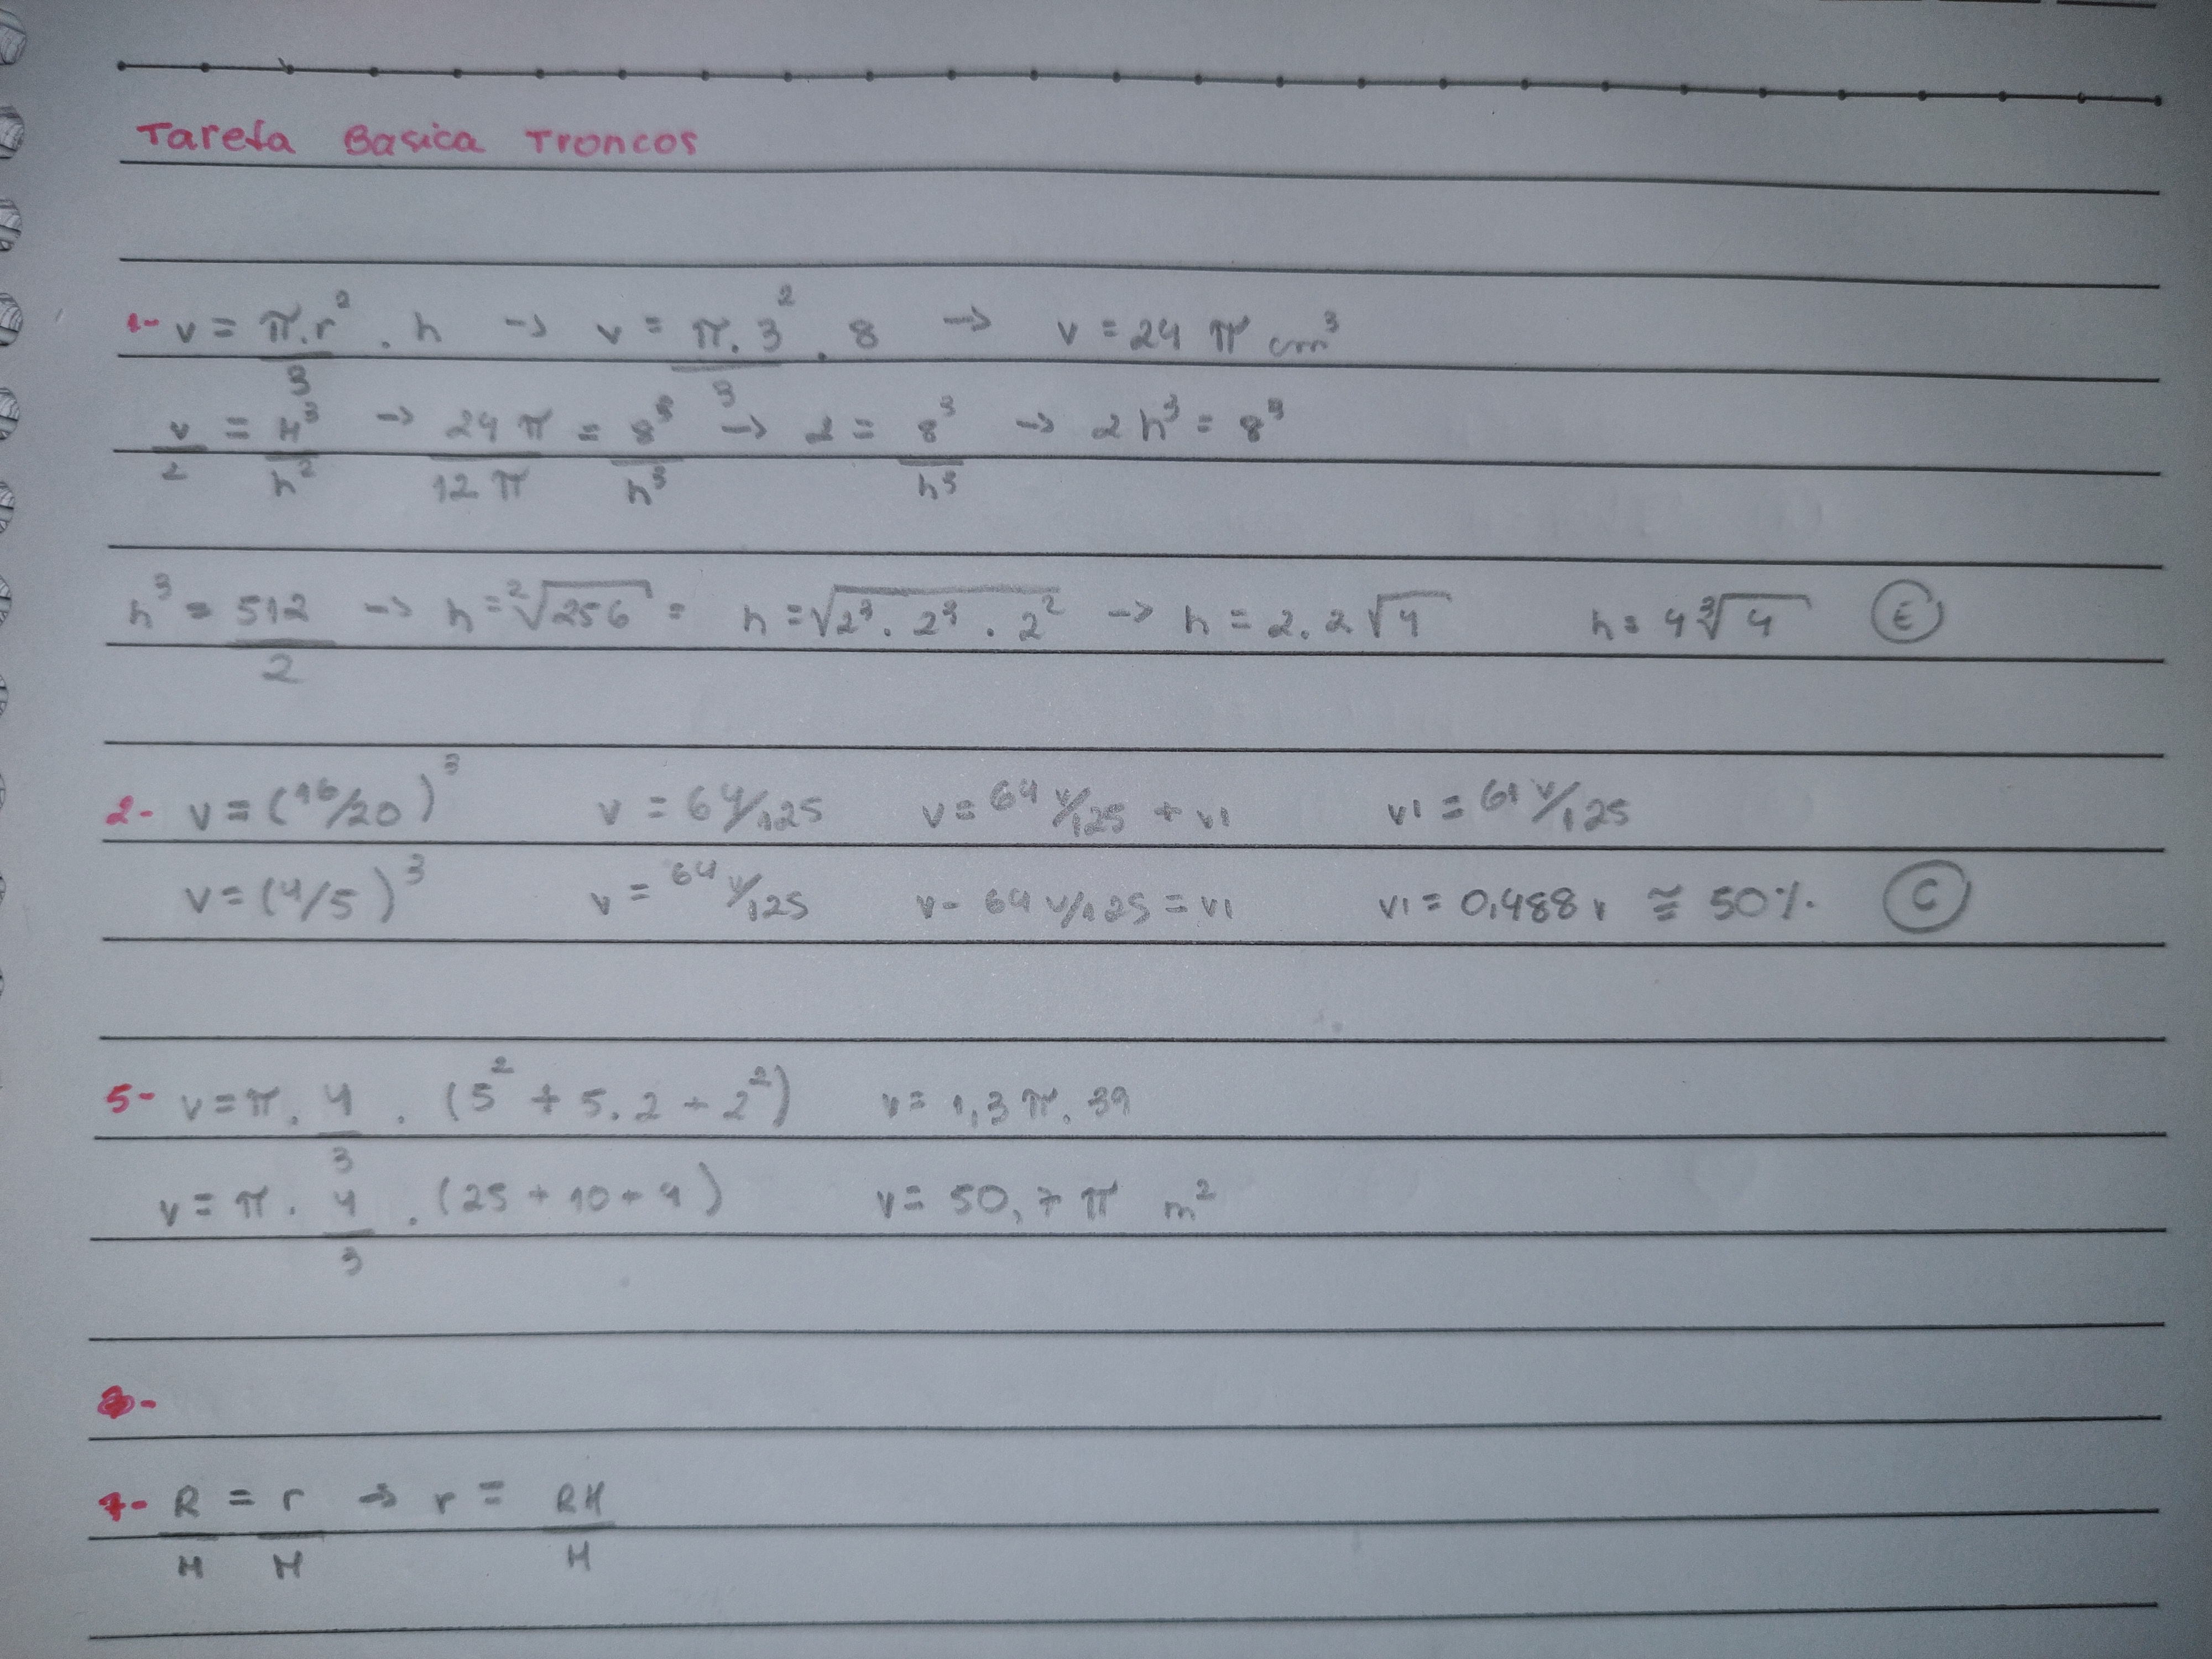 Tarefa Basica Troncos
1- v = π.r²/3 . h -> v = π.3²/3 . 8 -> v = 24 π cm³
v/2 = H³/h² -> 24 π/12 π = 8³/h³ -> 2 = 8³/h³ -> 2h³ = 8³
h³ = 512/2 -> h = ²√256 = h = √2³.2³.2² -> h = 2.2√4 h = 4³√4 (E)
2- v = (16/20)³ v = 64/125 v = 64 v/125 + v1 v1 = 61 v/125
v = (4/5)³ v = 64 v/125 v - 64 v/125 = v1 v1 = 0,488 v ≅ 50%. (C)
5- v = π . 4/3 . (5² + 5.2 + 2²) v = 1,3 π. 39
v = π . 4/3 . (25 + 10 + 4) v = 50,7 π m²
7- R/H = r/H -> r = RH/H